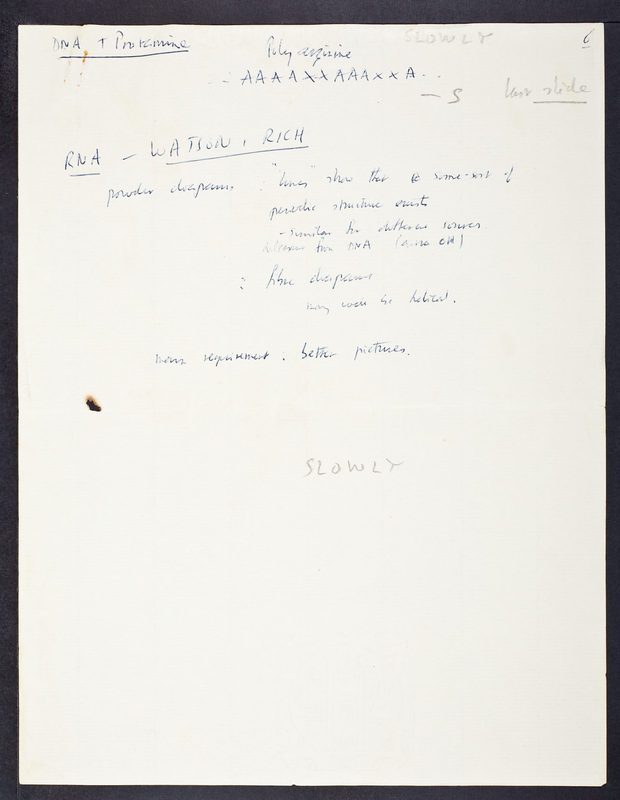 SLOWLY 6
DNA + Protamine
Poly arginine
- AAAAXXAAAXXA..
— S last slide
RNA — WATSON, RICH
powder diagrams : "lines" show that some-sort of
periodic structure exists
- similar for different sources
different from DNA
: fibre diagrams
may well be helical.
requirement : better pictures.
SLOWLY